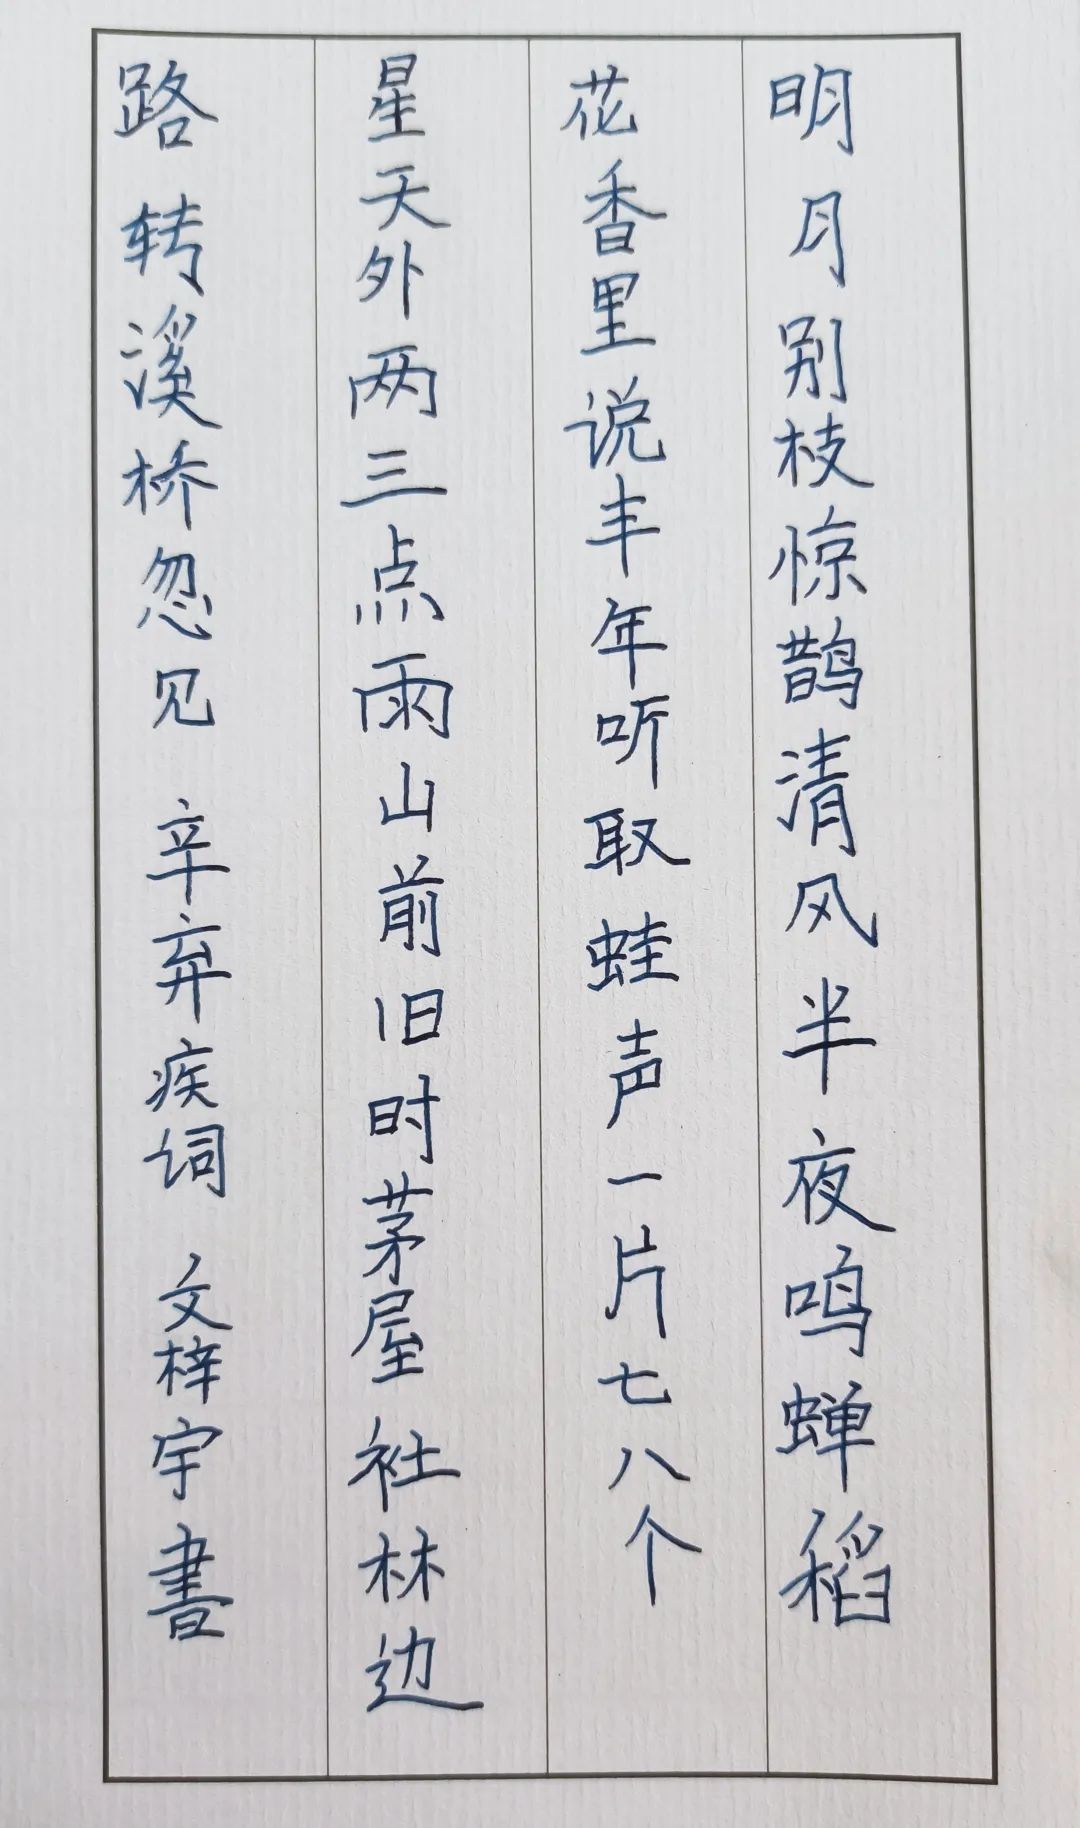 明月别枝惊鹊清风半夜鸣蝉稻
花香里说丰年听取蛙声一片七八个
星天外两三点雨山前旧时茅屋社林边
路转溪桥忽见 辛弃疾词 文梓宇書